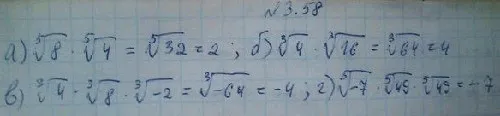 №3.58
а) ⁵√8 · ⁵√4 = ⁵√32 = 2 ; б) ³√4 · ³√16 = ³√64 = 4
в) ³√4 · ³√8 · ³√-2 = ³√-64 = -4 ; г) ⁵√-7 · ⁵√49 · ⁵√49 = -7